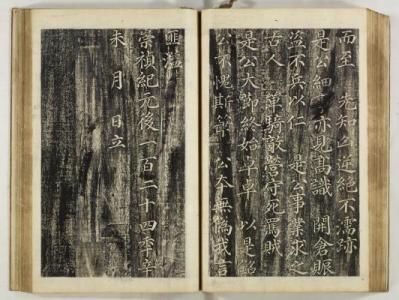 而至 先知凶逆絶不濡跡
是公細 亦見高識 開倉賑
盜不兵以仁 是公事業求之
古人 單騎敵營守死罵賊
是公大節終始卓卓 以是銘
公不愧斯 公本無僞我言
匪濫
崇禎紀元後一百二十四年辛
未 月 日立